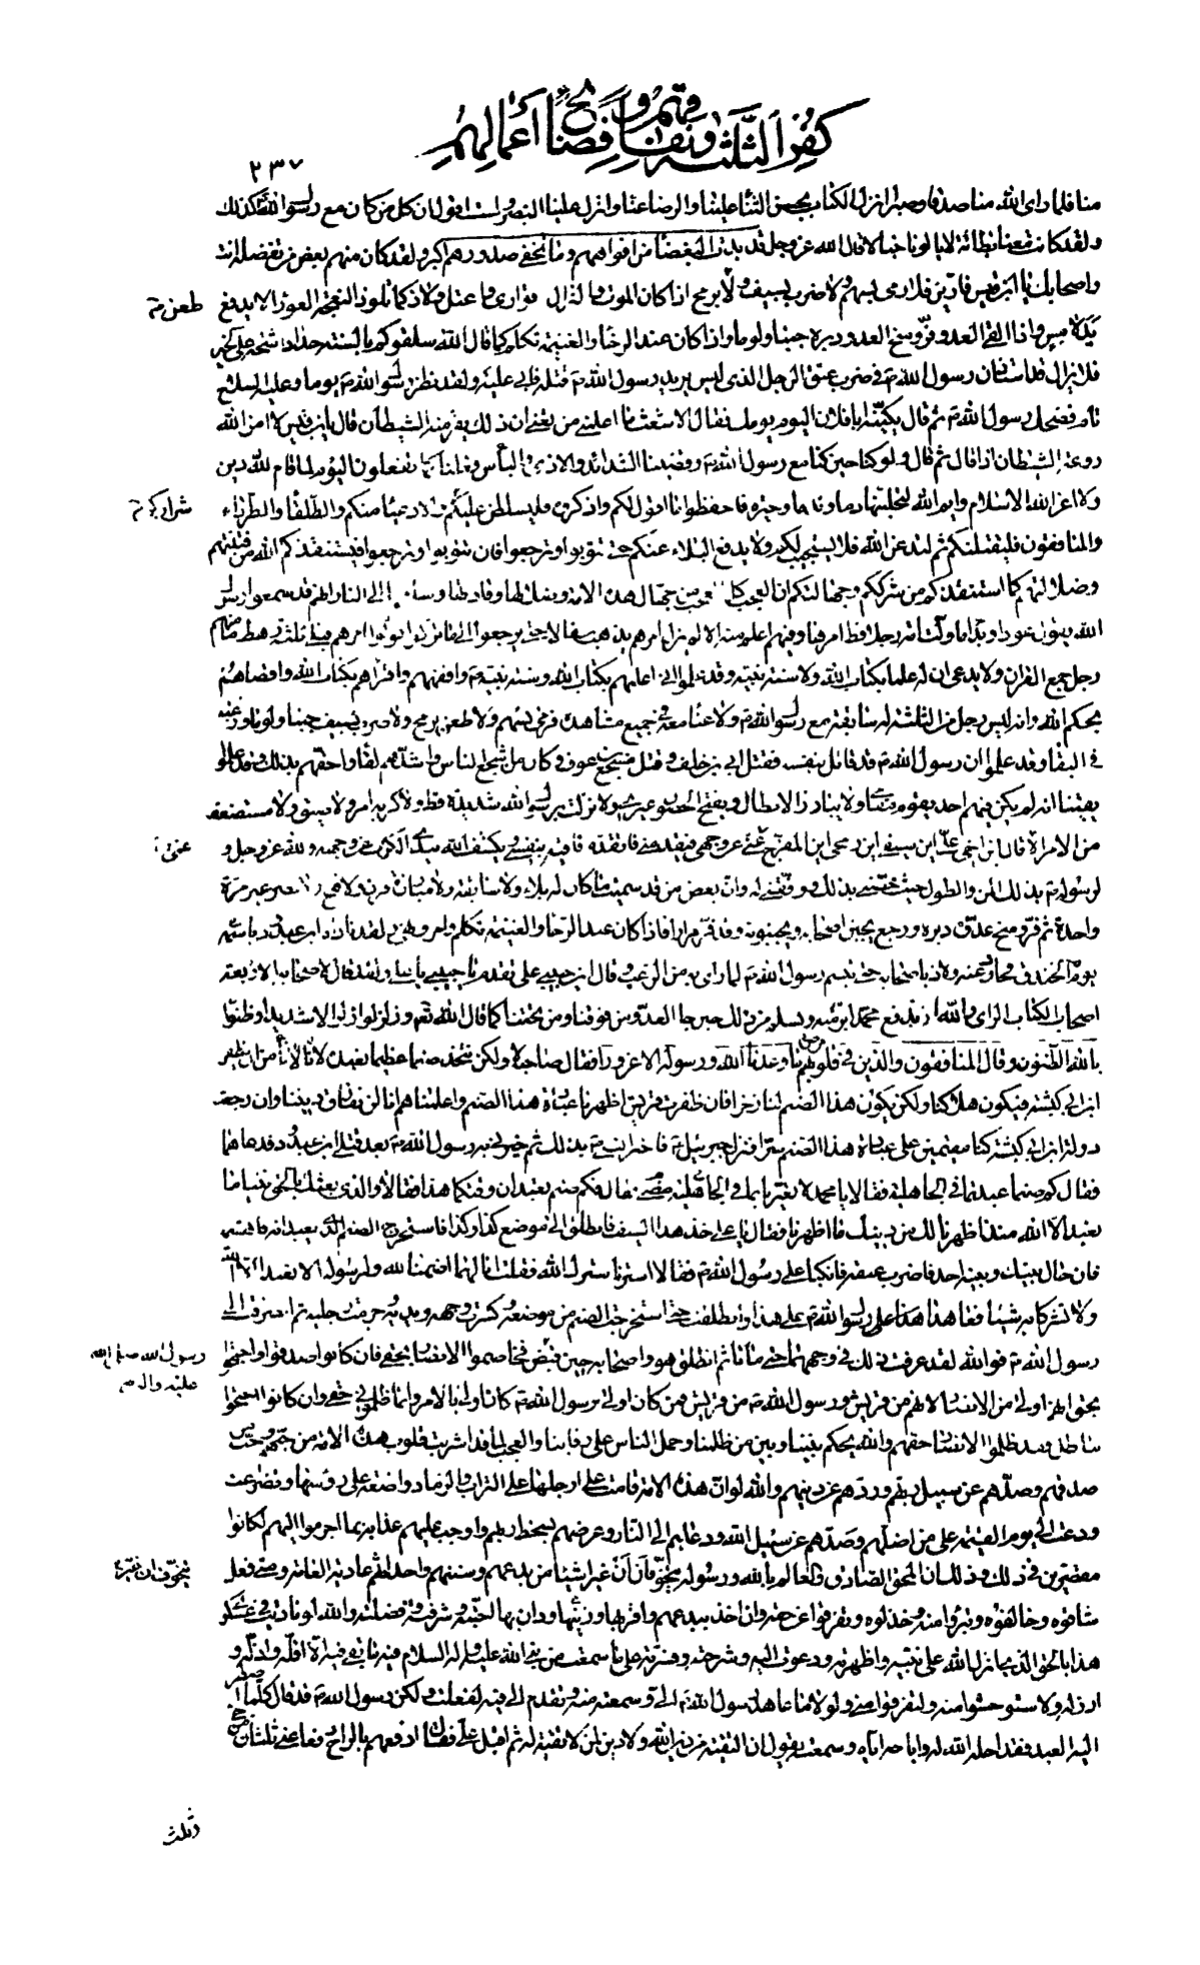 كفر الثلثة ونفاقهم وفضائح أعمالهم
٢٣٧
منا فلما راى الله منا صدقا وصبرا انزل الكتاب بحسن الثناء علينا والرضا عنا وانزل علينا النصر ولست اقول ان كل من كان مع رسول الله كذلك
ولقد كانت معنا بطانة لا يالونا خبالا قال الله عز وجل قد بدت البغضاء من افواههم وما تخفى صدورهم اكبر ولقد كان منهم بعض من تفضله انت
واصحابك يابن قيس فارين فلا رمى بسهم ولا ضرب بسيف ولا برمح اذا كان الموت والنزال توارى واعتل ولاذ كما تلوذ النعجة العوراء لا يدفع
طعن
يد لامس واذا القى العدو فر ومنح العدو دبره جبنا ولوما واذا كان عند الرخاء والغنيمة تكلم كما قال الله سلقوكم بالسنة حداد اشحة على الخير
فلا يزال قد استاذن رسول الله ص فى ضرب عنق الرجل الذى ليس يريد رسول الله ص قتله فابى عليه ولقد نظر رسول الله ص يوما وعليه السلاح
تام فضحك رسول الله ص ثم قال يكنيه ابا فلان اليوم يومك فقال الاشعث ما اعلمنى من تعنى ان ذلك يفر منه الشيطان قال يابن قيس لا امن الله
روعة الشيطان اذا قال ثم قال ولو كنا حين كنا مع رسول الله ص وتصيبنا الشدائد والاذى والباس فعلنا كما تفعلون اليوم لما قام لله دين
ولا اعز الله الاسلام وايم الله لتحلبنها دما وندما وحيرة فاحفظوا ما اقول لكم واذكروه فليسلطن عليكم شراركم والادعياء منكم والطلقاء والطرداء
شراركم
والمنافقون فليقتلنكم ثم لتدعن الله فلا يستجيب لكم ولا يدفع البلاء عنكم حتى تتوبوا وترجعوا فان تتوبوا وترجعوا فيستنقذكم الله من فتنتهم
وضلالتهم كما استنقذكم من شرككم وجهالتكم ان العجب كل العجب من جهال هذه الامة وضلالها وقادتها وساقتها الى النار انهم قد سمعوا رسول
الله يقول عودا وبدءا ما ولت امة رجلا قط امرها وفيهم اعلم منه الا لم يزل امرهم يذهب سفالا حتى يرجعوا الى ما تركوا فولوا امرهم قبلى ثلثة رهط ما منهم
رجل جمع القران ولا يدعى ان له علما بكتاب الله ولا سنة نبيه وقد علموا انى اعلمهم بكتاب الله وسنة نبيه ص وافقههم واقراهم بكتاب الله واقضاهم
بحكم الله وانه ليس رجل من الثلثة له سابقة مع رسول الله ص ولا عناء معه فى جميع مشاهده فرمى بسهم ولا طعن برمح ولا ضرب بسيف جبنا ولوما ورغبة
فى البقاء وقد علموا ان رسول الله ص قد قاتل بنفسه فقتل ابى بن خلف وقتل مسجع بن عوف وكان من اشجع الناس واشدهم لقاء واحقهم بذلك وقد علموا
يقينا انه لم يكن فيهم احد يقوم مقامى ولا يبارز الابطال ويفتح الحصون غيرى ولا نزلت برسول الله شديدة قط ولا كربه امر ولا ضيق ولا مستصعب
من الامر الا قال اين اخى على اين سيفى اين رمحى اين المفرج غمى عن وجهى فيقدمنى فاتقدم فاقيه بنفسى ويكشف الله بيدى الكرب عن وجهه ولله عز وجل و
عنى
لرسوله ص بذلك المن والطول حيث خصنى بذلك ووفقنى له وان بعض من قد سميت ما كان له بلاء ولا سابقة ولا مبارزة قرن ولا فتح ولا نصر غير مرة
واحدة ثم فر ومنح عدوه دبره ورجع يجبن اصحابه ويجبنونه وقد فر مرارا فاذا كان عند الرخاء والغنيمة تكلم وامر ونهى لقد ناداه ابن عبد ود باسمه
يوم الخندق فحاد عنه ولاذ باصحابه حتى تبسم رسول الله ص لما راى به من الرعب وقال اين حبيبى على تقدم يا حبيبى يا على ولقد قال لاصحابه الاربعة
اصحاب الكتاب الراى والله ان ندفع محمدا برمته ونسلم من ذلك حين جاء العدو من فوقنا ومن تحتنا كما قال الله تعم وزلزلوا زلزالا شديدا وظنوا
بالله الظنونا وقال المنافقون والذين فى قلوبهم مرض ما وعدنا الله ورسوله الا غرورا فقال صاحبه لا ولكن نتخذ صنما عظيما نعبده لانا لا نامن ان يظفر
ابن ابى كبشة فيكون هلاكنا ولكن يكون هذا الصنم لنا ذخرا فان ظفرت قريش اظهرنا عبادة هذا الصنم واعلمناهم انا لن نفارق ديننا وان رجعت
دولة ابن ابى كبشة كنا مقيمين على عبادة هذا الصنم سرا فنزل جبرئيل ع فاخبر النبى ص بذلك ثم خبرنى به رسول الله ص بعد قتلى ابن عبد ود فدعاهما
فقال كم صنما عبدتما فى الجاهلية فقالا يا محمد لا تعيرنا بما مضى فى الجاهلية فقال فكم صنم تعبدان وقتكما هذا فقالا والذى بعثك بالحق نبيا ما
نعبد الا الله منذ اظهرنا لك من دينك ما اظهرنا فقال يا على خذ هذا السيف فانطلق الى موضع كذا وكذا فاستخرج الصنم الذى يعبدانه فاهشمه
فان حال بينك وبينه احد فاضرب عنقه فانكبا على رسول الله ص فقالا استرنا سترك الله فقلت انا لهما اضمنا لله ولرسوله الا تعبدا الا الله
ولا تشركا به شيئا فعاهدا هذا على رسول الله ص على هذا وانطلقت حتى استخرجت الصنم من موضعه وكسرت وجهه ويديه وجزمت رجليه ثم انصرفت الى
رسول الله ص فوالله لقد عرفت ذلك فى وجههما حتى ماتا ثم انطلق هو واصحابه حين قبض فخاصموا الانصار بحقى فان كانوا صدقوا واحتجوا
رسول الله صلى الله
عليه واله
بحق انهم اولى من الانصار لانهم من قريش ورسول الله ص من قريش فمن كان اولى برسول الله ص كان اولى بالامر وانما ظلمونى حقى وان كانوا احتجوا
بباطل فقد ظلموا الانصار حقهم والله يحكم بيننا وبين من ظلمنا وحمل الناس على رقابنا والعجب لما قد اشربت قلوب هذه الامة من حبهم وحب من
صدقهم وصدهم عن سبيل ربهم وردهم عن دينهم والله لو ان هذه الامة قامت على ارجلها على التراب والرماد واضعة على رؤسها وتضرعت
ودعت الى يوم القيمة على من اضلهم وصدهم عن سبيل الله ودعاهم الى النار وعرضهم لسخط ربهم واوجب عليهم عذابه بما اجرموا اليهم لكانوا
مقصرين فى ذلك وذلك ان المحق الصادق والعالم بالله ورسوله يتخوفان ان غير شيئا من بدعهم وسننهم واحداثهم عادية العامة ومتى فعل
شاقوه وخالفوه وتبرؤا منه وخذلوه وتفرقوا عن حقه وان اخذ ببدعهم واقر بها وزينها ودان بها احبته وشرفته وفضلته والله لو ناديت فى عسكرى
هذا بالحق الذى انزل الله على نبيه واظهرته ودعوت اليه وشرحته وفسرته على ما سمعت من نبى الله عليه واله السلام فيه ما بقى فيه الا اقله واذله و
ارذله ولاستوحشوا منه ولتفرقوا منى ولولا ما عاهد رسول الله ص الى وسمعته منه وتقدم الى فيه لفعلت ولكن رسول الله ص قد قال كلما اضطر
اليه العبد فقد احله الله له واباحه اياه وسمعته يقول ان التقية من دين الله ولا دين لمن لا تقية له ثم اقبل على فقال ادفعهم بالراح دفعا عنى ثلثان من حى
وثلث